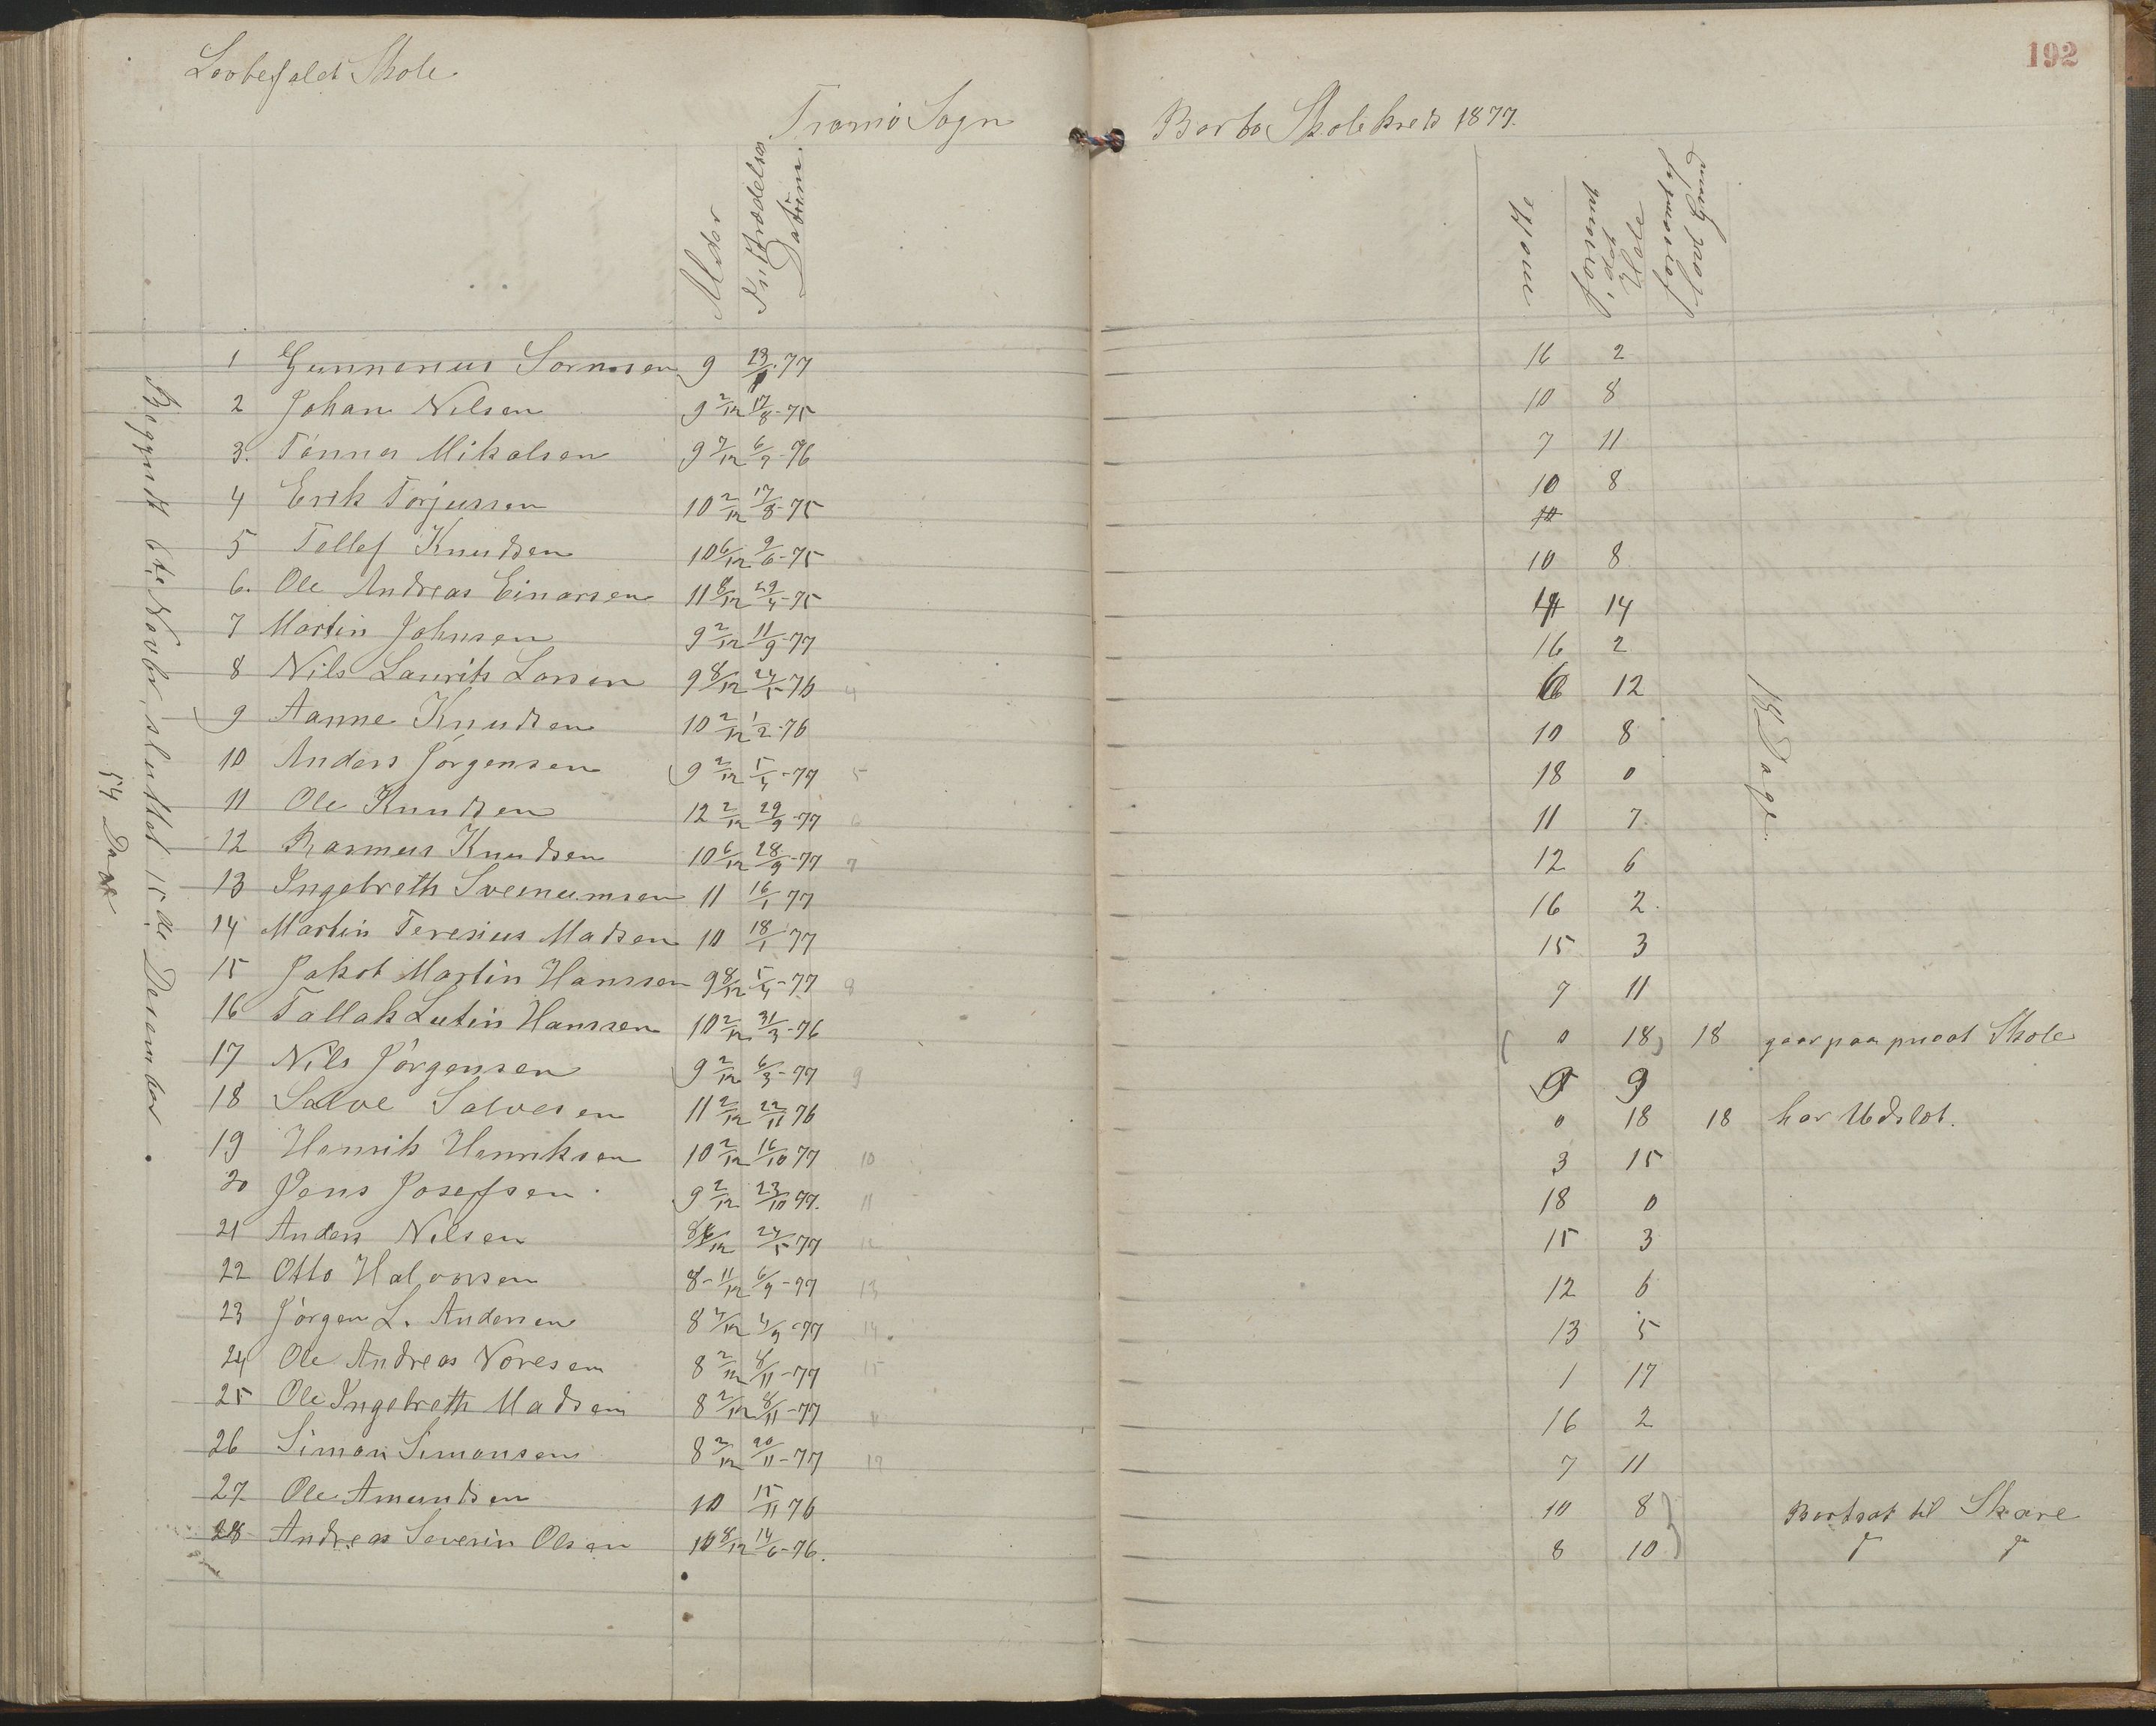 192
Skole
Tromö Sogn
Barbo Skolekreds 1877.
Alder
Indtrædelses Datum.
Hele
18 Dage
Begyndt 6te Novbr, sluttet 15de December.
54 Dage
1 Gunnerius Sörensen 9 23/1-77 16 2
2 Johan Nilsen 9 2/12 17/8-75 10 8
3. Tönnes Mikalsen 9 7/12 6/9-76 7 11
4 Erik Torjussen 10 2/12 17/8-75 10 8
5 Tellef Knudsen 10 6/12 9/6-75 10 8
6. Ole Andreas Einarsen 11 8/12 29/4-75 14
7 Martin Johnsen 9 2/12 11/9-77 16 2
8 Nils Laurits Larsen 9 8/12 24/5-76 4 6 12
9 Aanne Knudsen 10 2/12 1/2-76 10 8
10 Anders Jörgensen 9 2/12 5/4-77 5 18 0
11 Ole Knudsen 12 2/12 29/9-77 6 11 7
12 Rasmus Knudsen 10 6/12 28/9-77 7 12 6
13 Ingebreth Sveinumsen 11 16/1 77 16 2.
14 Martin Teresius Madsen 10 18/1 77 15 3
15 Jakob Martin Hanssen 9 8/12 5/4-77 8 7 11
16 Tallak Hanssen 10 2/12 31/3-76 (0 18) 18 gaar paa privat Skole
17 Nils Jörgensen 9 2/12 6/3-77 9 9 9
18 Salve Salvesen 11 2/12 22/11 76 0 18 18 har Udslæt.
19 Henrik Henriksen 10 2/12 16/10 77 10 3 15
20 Jens Josefsen 9 2/12 23/10 77. 11 18 0
21 Anders Nilsen 24/5 77 12 15 3
22 Otto Halvorsen 8-11/12 6/9-77 13 12 6
23 Jörgen L. Andersen 8 7/12 4/9-77 14. 13 5
24 Ole Andreas Noresen 8 2/12 8/11-77 15 1 17
25 Ole Ingebreth Madsen 8 2/12 8/11-77 16 2
26 Simon Simonsen 8 2/12 20/11-77 17 7 11
27 Ole Amundsen 10 15/11 76 10 8 Bortsat til Skare
28 Andreas Severin Olsen 10 8/12 14/6-76. 8 10